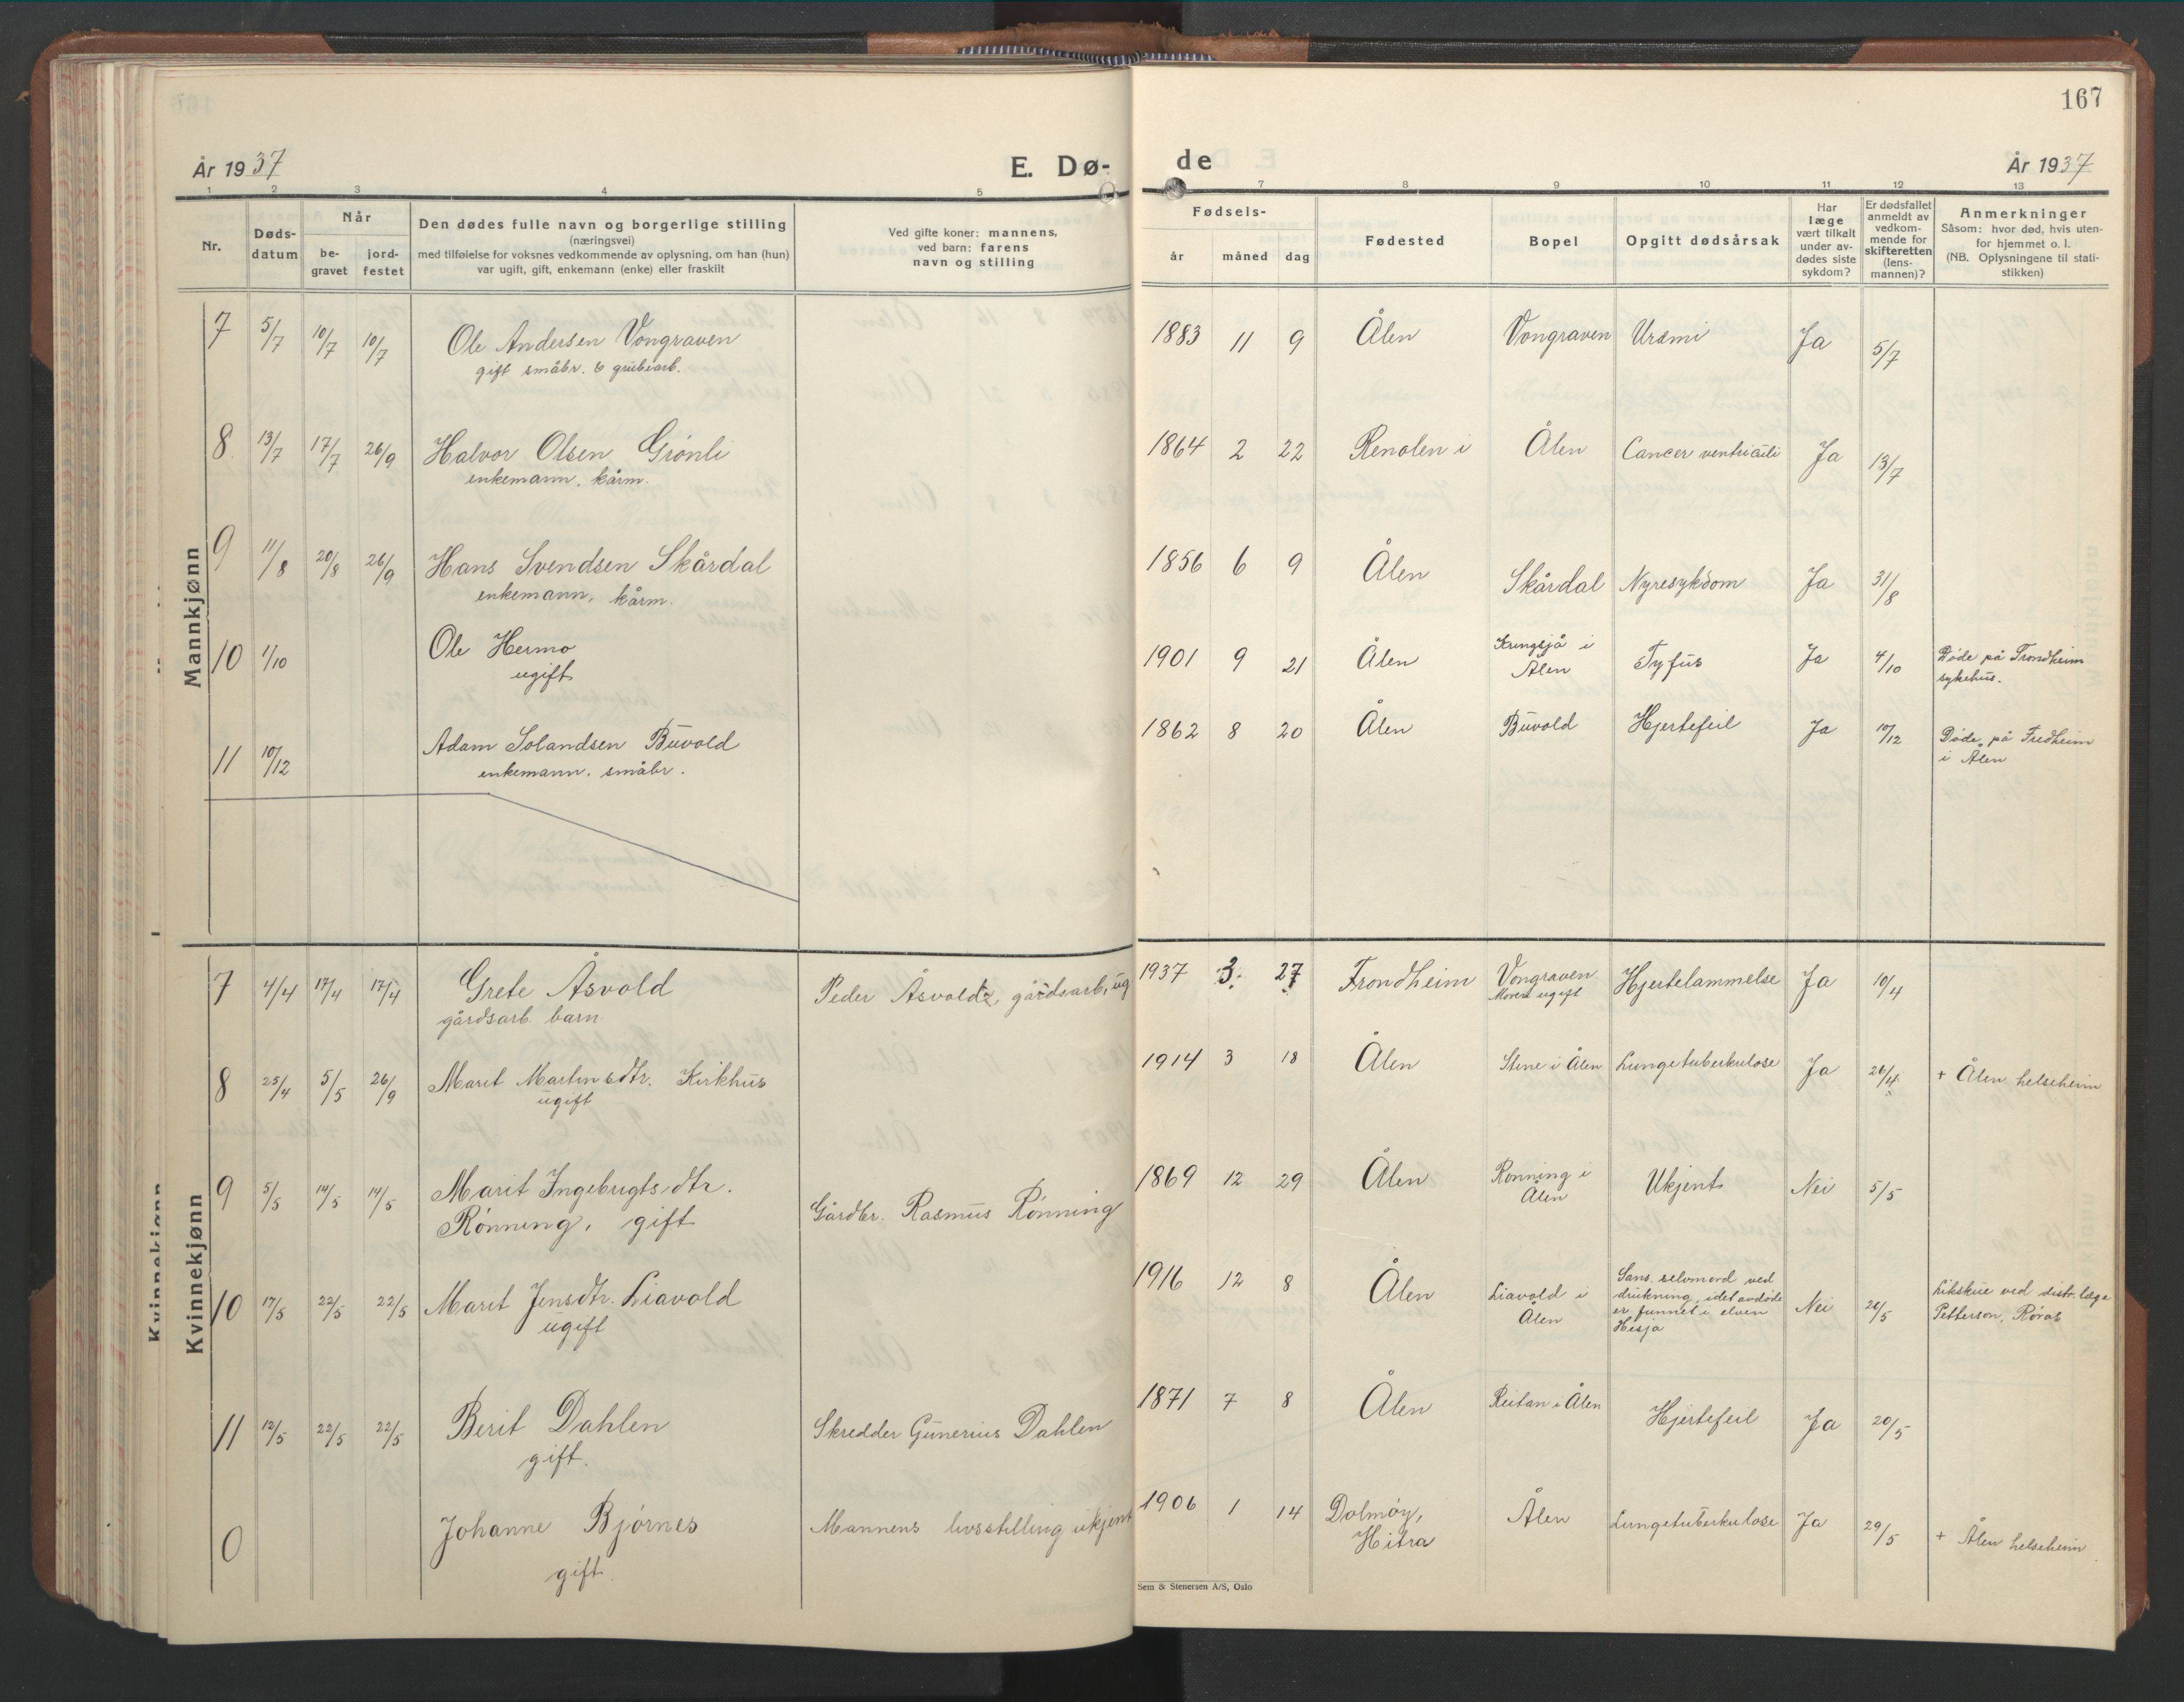 167
År 1937 E. Dø- de År 1937
1 2 3 4 5 7 8 9 10 11 12 13
Nr.
Døds-
datum
Når
be-
gravet
jord-
festet
Den dødes fulle navn og borgerlige stilling
(næringsvei)
med tilføielse for voksnes vedkommende av oplysning, om han (hun)
var ugift, gift, enkemann (enke) eller fraskilt
Ved gifte koner: mannens,
ved barn: farens
navn og stilling
Fødsels-
år måned dag
Fødested
Bopel
Opgitt dødsårsak
Har
læge
vært tilkalt
under av-
dødes siste
sykdom?
Er dødsfallet
anmeldt av
vedkom-
mende for
skifteretten
(lens-
mannen)?
Anmerkninger
Såsom: hvor død, hvis uten-
for hjemmet o. l.
(NB. Oplysningene til stati-
stikken)
Mannkjønn
7 5/7 10/7 10/7 Ole Andersen Vongraven 1883 11 9 Ålen Vongraven Urämi Ja 5/7
gift småbr. & grubearb.
8 13/7 17/7 26/9 Halvor Olsen Grönli 1864 2 22 Renolen i Ålen Cancer ventriculi Ja 13/7
enkemann, kårm.
9 11/8 20/8 26/9 Hans Svendsen Skårdal 1856 6 9 Ålen Skårdal Nyresykdom Ja 31/8
enkemann, kårm.
10 1/10 Ole Hermo 1901 9 21 Ålen Kungsjå i Ålen Tyfus Ja 4/10 Döde på Trondheim
ugift sykehus.
11 10/12 Adam Solandsen Buvold 1862 8 20 Ålen Buvold Hjertefeil Ja 10/12 Döde på Fredheim
enkemann, småbr. i Ålen
Kvinnekjønn
7 4/4 17/4 17/4 Grete Åsvold Peder Åsvold, gårdsarb, ug 1937 3 27 Trondheim Vongraven Hjertelammelse Ja 10/4
gårdsarb. barn Moren ugift
8 25/4 5/5 26/9 Marit Martinsdtr. Kirkhus 1914 3 18 Ålen Stene i Ålen Lungetuberkulose Ja 26/4 + Ålen helseheim
ugift
9 5/5 14/5 14/5 Marit Ingebrigtsdtr. 1869 12 29 Ålen Rönning i Ålen Ukjent Nei 5/5
Rönning, gift Gårdbr. Rasmus Rönning
10 17/5 22/5 22/5 Marit Jensdtr. Liavold 1916 12 8 Ålen Liavold i Ålen Nei 20/5
ugift
Sans. selvmord ved
drukning, idet avdöde
er funnet i elven
Hesja
Likskue ved distr. læge
Petterson, Röros
11 12/5 22/5 22/5 Berit Dahlen Skredder Gunerius Dahlen 1871 7 8 Ålen Reitan i Ålen Hjertefeil Ja 20/5
gift.
0 Johanne Bjørnes Mannens livsstilling ukjent 1906 1 14 Dolmöy, Ålen Lungetuberkulose Ja 29/5 + Ålen helseheim
gift. Hitra
Sem & Stenersen A/S, Oslo
Kvinnekjønn